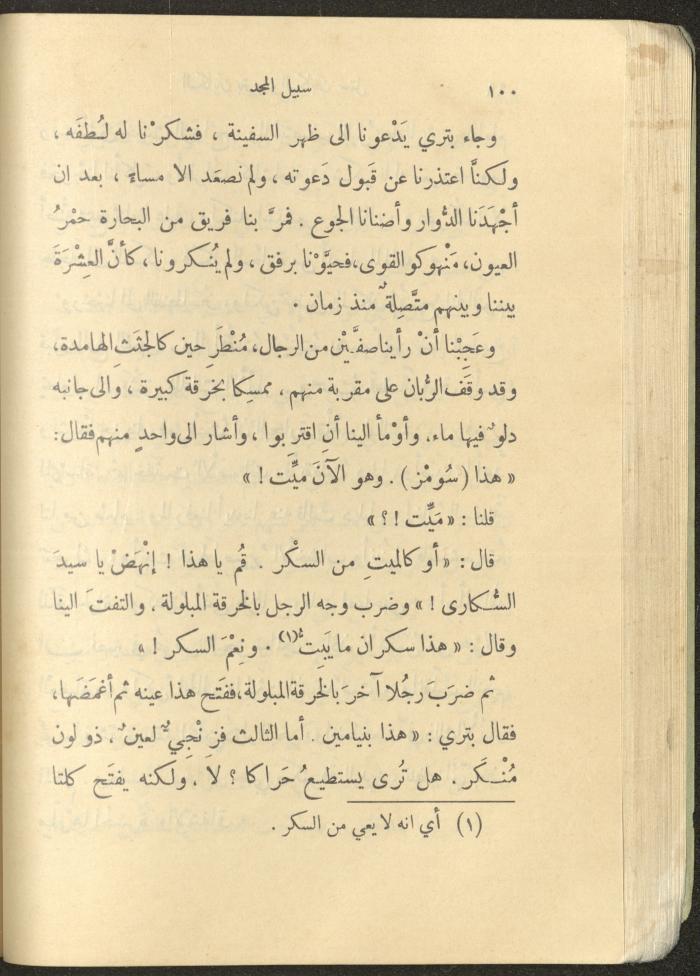 ١٠٠ سبيل المجد
وجاء بتري يَدْعونا الى ظهر السفينة ، فشكرْنا له لُطفَه ،
ولكنَّا اعتذرنا عن قَبول دَعوته ، ولم نصعَد الا مساءً ، بعد ان
أجْهَدَنا الدُّوار وأضنانا الجوع . فمرَّ بنا فريق من البحارة حُمْرُ
العيون، مَنْهوكو القوى، فحيَّوْنا برفق ، ولم يُنكرونا ، كأنَّ العِشْرَةَ
بيننا وبينهم متَّصِلةٌ منذ زمان .
وعَجِبْنا أنْ رأينا صفَّيْن من الرجال، مُنْطَرِحين كالجثَثِ الهامدة،
وقد وقَف الرُّبان على مقربة منهم ، ممسِكا بخرقة كبيرة ، والى جانبه
دلوٌ فيها ماء. وأوْمأ الينا أنِ اقتربوا ، وأشار الى واحدٍ منهم فقال:
« هذا (سُومْز) . وهو الآنَ ميِّت ! »
قلنا : « مَيِّت ! ؟ »
قال : « أو كالميتِ من السكْر . قُم يا هذا ! إنْهَضْ يا سيدَ
السُّكارى ! » وضرب وجه الرجل بالخرقة المبلولة . والتفتَ الينا
وقال : « هذا سكران ما يَبِتُّ(١) . ونِعْمَ السكر ! »
ثم ضرَبَ رجُلا آخرَ بالخرقة المبلولة، ففتَح هذا عينه ثم أغمَضَها،
فقال بتري : « هذا بنيامين . أما الثالث فزِنْجِيٌّ لعينٌ ، ذو لون
مُنْكَر . هل تُرى يستطيعُ حَراكا ؟ لا . ولكنه يفتَح كلتا
(١) أي انه لا يعي من السكر .